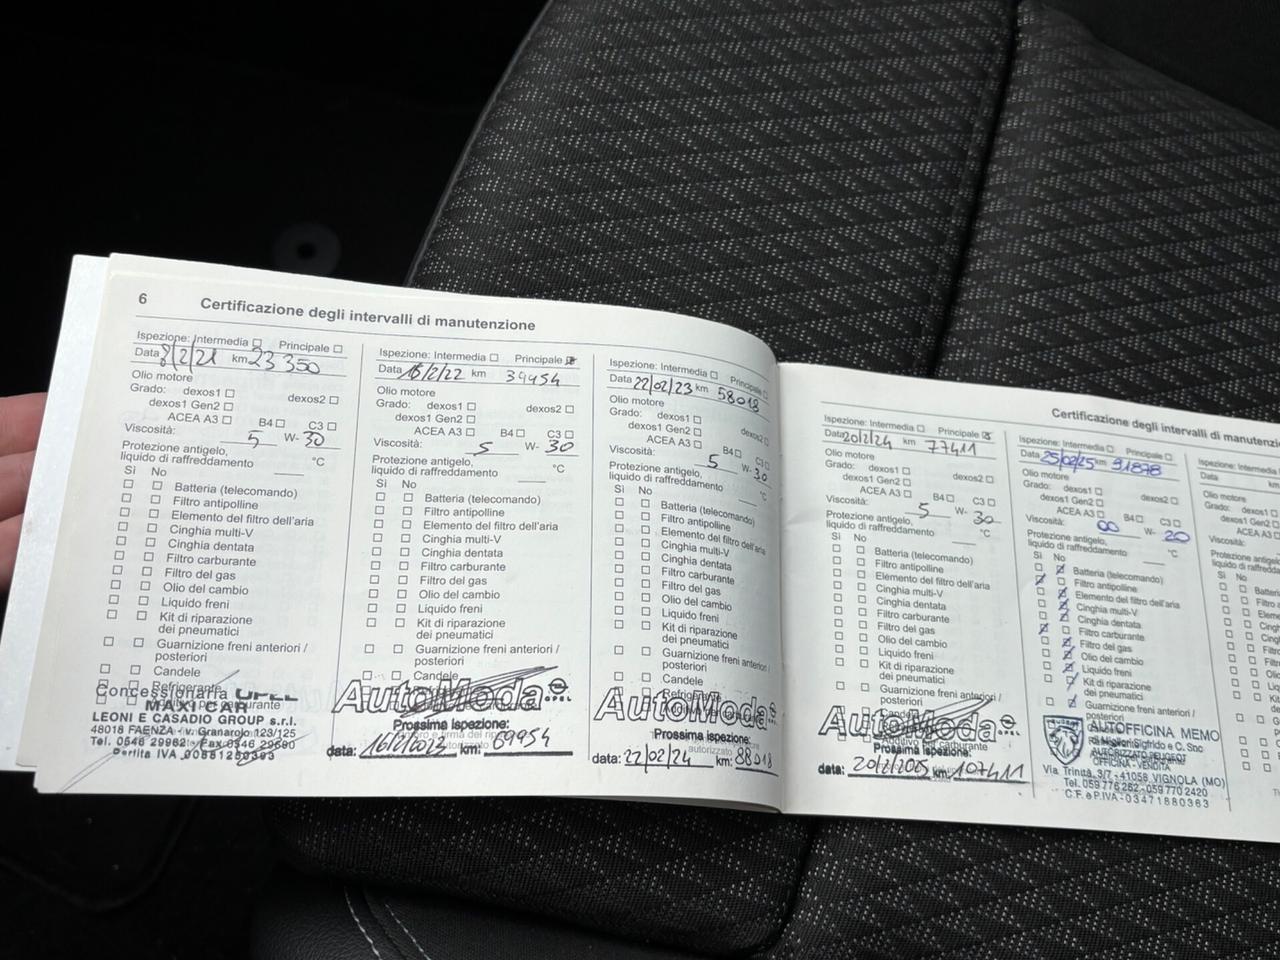 6
Certificazione degli intervalli di manutenzione
Ispezione: Intermedia Principale
Data 8/2/21 km 23 350
Olio motore
Grado: dexos1 dexos2
dexos1 Gen2
ACEA A3 B4 C3
Viscosità: 5 W- 30
Protezione antigelo,
liquido di raffreddamento °C
Sì No
Batteria (telecomando)
Filtro antipolline
Elemento del filtro dell'aria
Cinghia multi-V
Cinghia dentata
Filtro carburante
Filtro del gas
Olio del cambio
Liquido freni
Kit di riparazione
dei pneumatici
Guarnizione freni anteriori /
posteriori
Candele
Concessionaria OPEL
MAXICAR
LEONI E CASADIO GROUP s.r.l.
48018 FAENZA - v. Granarolo 123/125
Tel. 0546 29962 Fax 0546 29690
Partita IVA
Ispezione: Intermedia Principale
Data 16/2/22 km 39954
Olio motore
Grado: dexos1 dexos2
dexos1 Gen2
ACEA A3 B4 C3
Viscosità: 5 W- 30
Protezione antigelo,
liquido di raffreddamento °C
Sì No
Batteria (telecomando)
Filtro antipolline
Elemento del filtro dell'aria
Cinghia multi-V
Cinghia dentata
Filtro carburante
Filtro del gas
Olio del cambio
Liquido freni
Kit di riparazione
dei pneumatici
Guarnizione freni anteriori /
posteriori
Candele
AutoModa
Prossima ispezione:
data: 16/2/2023 km: 69954
Ispezione: Intermedia Principale
Data 22/02/23 km 58018
Olio motore
Grado: dexos1 dexos2
dexos1 Gen2
ACEA A3 B4 C3
Viscosità: 5 W- 30
Protezione antigelo,
liquido di raffreddamento °C
Sì No
Batteria (telecomando)
Filtro antipolline
Elemento del filtro dell'aria
Cinghia multi-V
Cinghia dentata
Filtro carburante
Filtro del gas
Olio del cambio
Liquido freni
Kit di riparazione
dei pneumatici
Guarnizione freni anteriori /
posteriori
Candele
Refrigerante
AutoModa
Prossima ispezione:
autorizzato
data: 22/02/24 km: 88018
Certificazione degli intervalli di manutenzi
Ispezione: Intermedia Principale
Data 20/2/24 km 77411
Olio motore
Grado: dexos1 dexos2
dexos1 Gen2
ACEA A3 B4 C3
Viscosità: 5 W- 30
Protezione antigelo,
liquido di raffreddamento °C
Sì No
Batteria (telecomando)
Filtro antipolline
Elemento del filtro dell'aria
Cinghia multi-V
Cinghia dentata
Filtro carburante
Filtro del gas
Olio del cambio
Liquido freni
Kit di riparazione
dei pneumatici
Guarnizione freni anteriori /
posteriori
Candele
AutoModa
Additivo per carburante
Prossima ispezione:
data: 20/2/2025 km: 107411
Ispezione: Intermedia Principale
Data 25/02/25 km 91878
Olio motore
Grado: dexos1 dexos2
dexos1 Gen2
ACEA A3 B4 C3
Viscosità: 00 W- 20
Protezione antigelo,
liquido di raffreddamento °C
Sì No
Batteria (telecomando)
Filtro antipolline
Elemento del filtro dell'aria
Cinghia multi-V
Cinghia dentata
Filtro carburante
Filtro del gas
Olio del cambio
Liquido freni
Kit di riparazione
dei pneumatici
Guarnizione freni anteriori /
posteriori
AUTOFFICINA MEMO
Sigfrido e C. Snc
AUTORIZZATO PEUGEOT
OFFICINA - VENDITA
Via Trinità, 3/7 - 41058 VIGNOLA (MO)
Tel. 059 776 262 - 059 770 2420
C.F. e P.IVA - 03471880363
Ispezione: Intermedia
Data km
Olio motore
Grado: dexos1
dexos1 Gen2
ACEA A3
Viscosità:
Protezione antigelo,
liquido di raffredda
Sì No